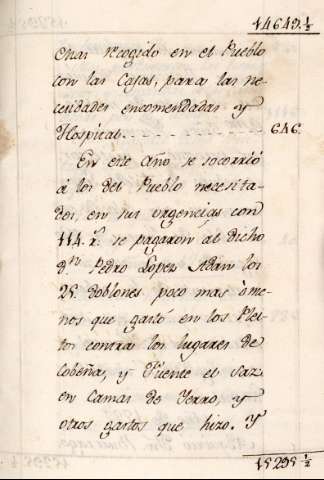 14649.½
chas recogido en el Pueblo
con las Casas, para las ne-
cesidades encomendadas y
Hospital. - - - - - - - - - - 646.
En este Año se socorrió
á los del Pueblo necesita-
dos en sus urgencias con
114. r.ˢ se pagaron al dicho
d.ⁿ Pedro Lopez Adan los
25. doblones poco mas ó me-
nos que gastó en los Plei-
tos contra los lugares de
Cobeña, y Fuente el Saz
en Camas de Yerro, y
otros gastos que hizo. Y
15295 ½